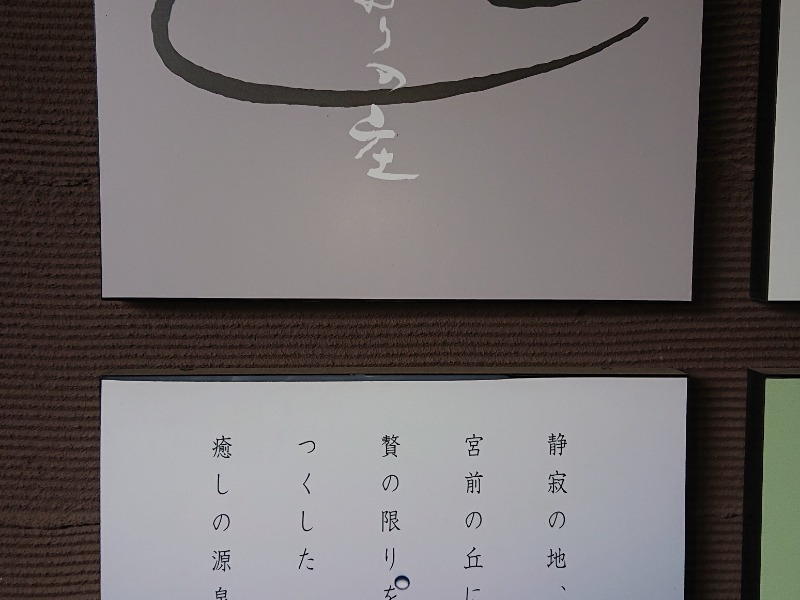 りの座
静寂の地、
宮前の丘に
贅の限りを
つくした
癒しの源泉